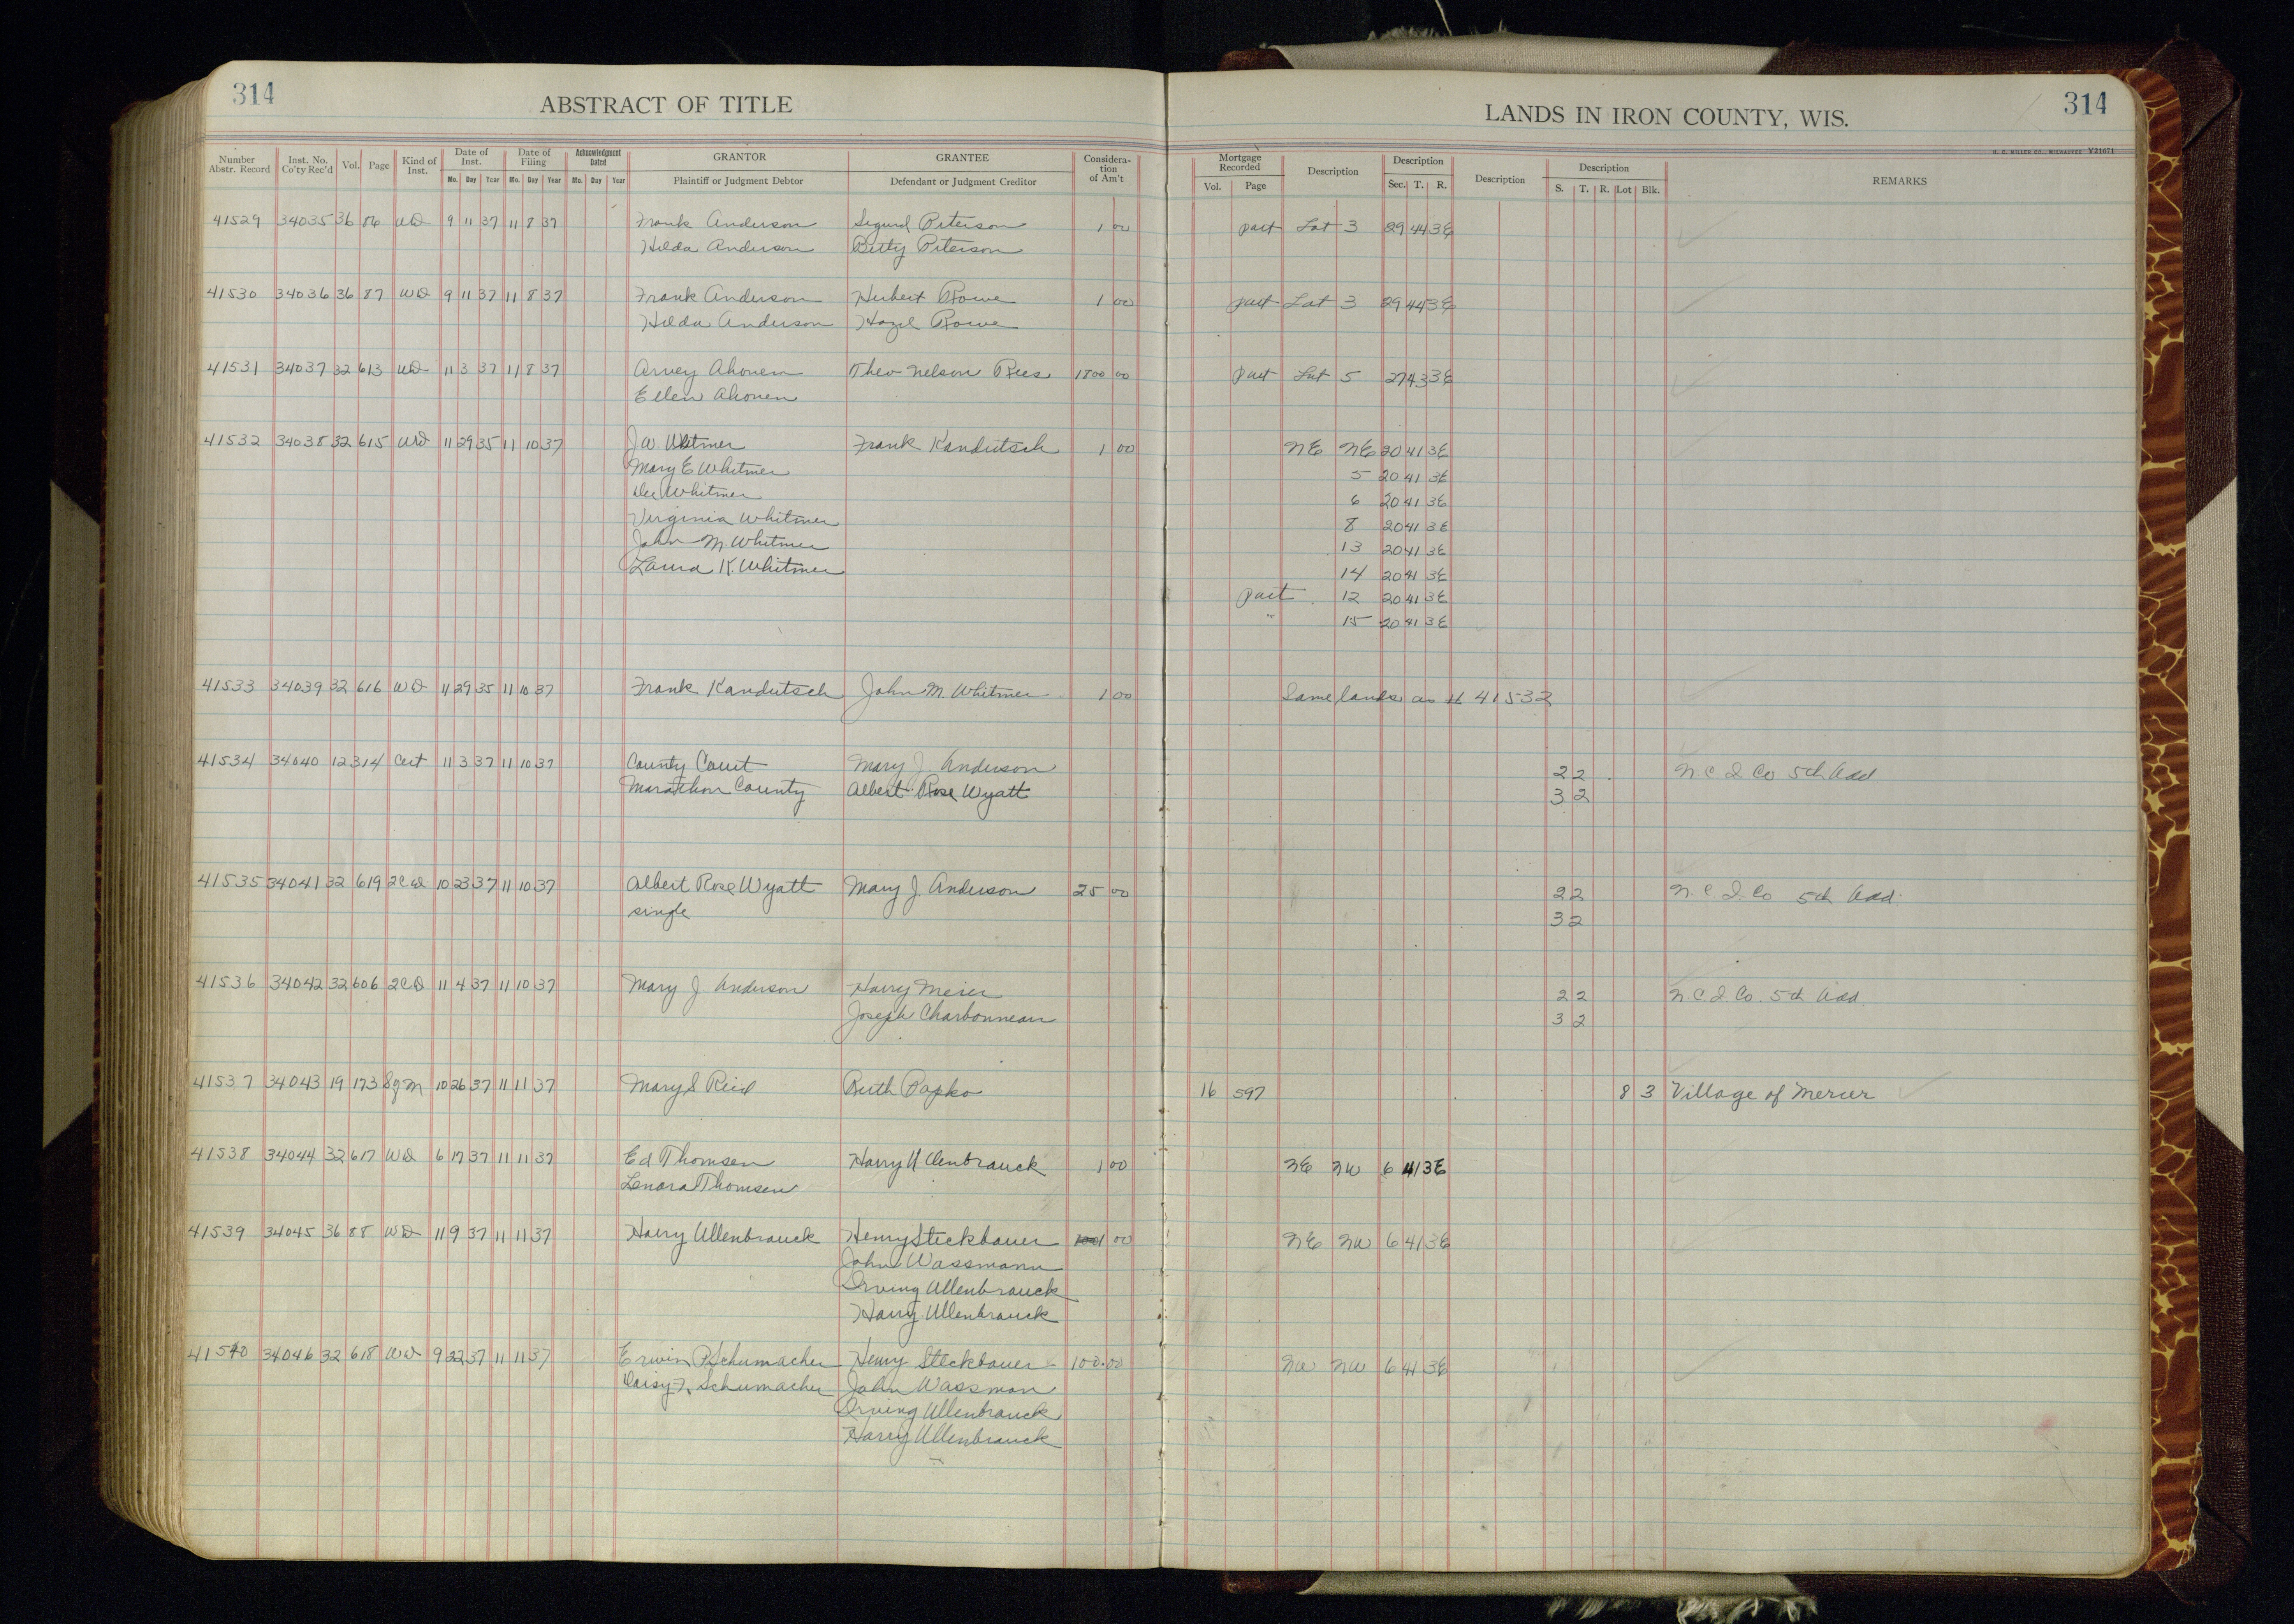 314
ABSTRACT OF TITLE
LANDS IN IRON COUNTY, WIS.
314
H. C. MILLER CO., MILWAUKEE V21671
Number Abstr. Record Inst. No. Co'ty Rec'd Vol. Page Kind of Inst. Date of Inst. Mo. Day Year Date of Filing Mo. Day Year Acknowledgment Dated Mo. Day Year GRANTOR Plaintiff or Judgment Debtor GRANTEE Defendant or Judgment Creditor Considera-tion of Am't Mortgage Recorded Vol. Page Description Description Sec. T. R. Description Description S. T. R. Lot Blk. REMARKS
41529 34035 36 86 WD 9 11 37 11 8 37 Frank Anderson Sigurd Peterson 1 00 part Lot 3 29 44 3E
Hilda Anderson Betty Peterson
41530 34036 36 87 WD 9 11 37 11 8 37 Frank Anderson Herbert Rowe 1 00 part Lot 3 29 44 3E
Hilda Anderson Hazel Rowe
41531 34037 32 613 WD 11 3 37 11 8 37 Arvey Ahonen Theo Nelson Rees 1800 00 part Lot 5 27 43 3E
Ellen Ahonen
41532 34038 32 615 WD 11 29 35 11 10 37 J.W. Whitmer Frank Kandutsch 1 00 NE NE 20 41 3E
Mary E Whitmer 5 20 41 3E
Whitmer 6 20 41 3E
Virginia Whitmer 8 20 41 3E
John M. Whitmer 13 20 41 3E
Laura K. Whitmer 14 20 41 3E
part 12 20 41 3E
" 15 20 41 3E
41533 34039 32 616 WD 11 29 35 11 10 37 Frank Kandutsch John M. Whitmer 1 00 Same lands as # 41532
41534 34040 12 314 Cert 11 3 37 11 10 37 County Court Mary J. Anderson 2 2 N C I Co 5th Add
Marathon County Albert Rose Wyatt 3 2
41535 34041 32 619 2CD 10 23 37 11 10 37 Albert Rose Wyatt Mary J. Anderson 25 00 2 2 N. C. I. Co 5th Add.
single 3 2
41536 34042 32 606 2CD 11 4 37 11 10 37 Mary J Anderson Harry Meier 2 2 N. C. I Co. 5th Add
Joseph Charbonneau 3 2
41537 34043 19 173 SgM 10 26 37 11 11 37 Mary S Reid Ruth Papko 16 597 8 3 Village of Mercer
41538 34044 32 617 WD 6 17 37 11 11 37 Ed Thomsen Harry Ullenbrauck 1 00 NE NW 6 41 3E
Lenora Thomsen
41539 34045 36 88 WD 11 9 37 11 11 37 Harry Ullenbrauck Henry Steckbauer 1 00 NE NW 6 41 3E
John Wassmann
Irving Ullenbrauck
Harry Ullenbrauck
41540 34046 32 618 WD 9 22 37 11 11 37 Erwin P Schumacher Henry Steckbauer 100.00 NW NW 6 41 3E
Daisy F. Schumacher John Wassman
Irving Ullenbrauck
Harry Ullenbrauck